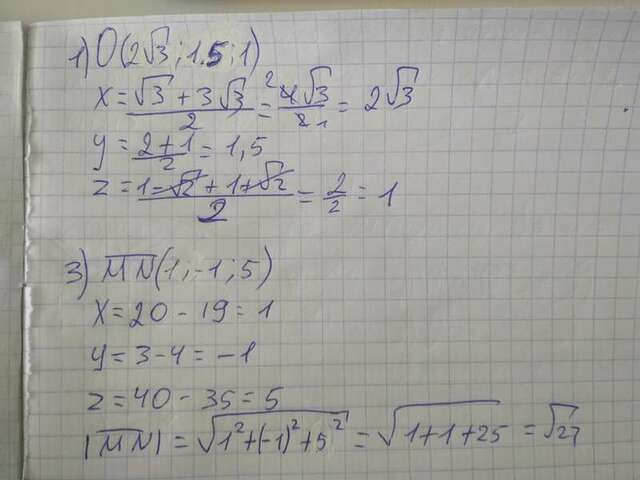 1) O(2√3; 1,5; 1)
x = (√3 + 3√3)/2 = 4√3/2 = 2√3
y = (2+1)/2 = 1,5
z = (1-√2 + 1+√2)/2 = 2/2 = 1
3) MN(1; -1; 5)
x = 20 - 19 = 1
y = 3-4 = -1
z = 40 - 35 = 5
|MN| = √(1² + (-1)² + 5²) = √(1+1+25) = √27